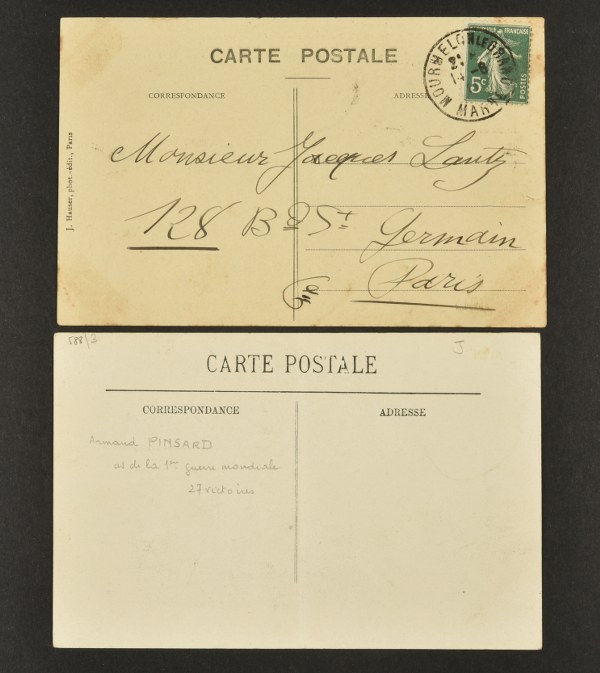 CARTE POSTALE
CORRESPONDANCE
ADRESSE
FRANÇAISE
5c
POSTES
MOURMELON-LE-GRAND
MARNE
J. Hauser, phot.-édit., Paris
Monsieur Jacques Lantz
128 Bd St
Germain
Paris
588/2
J
CARTE POSTALE
CORRESPONDANCE
ADRESSE
Armand PINSARD
as de la 1ère guerre mondiale
27 victoires